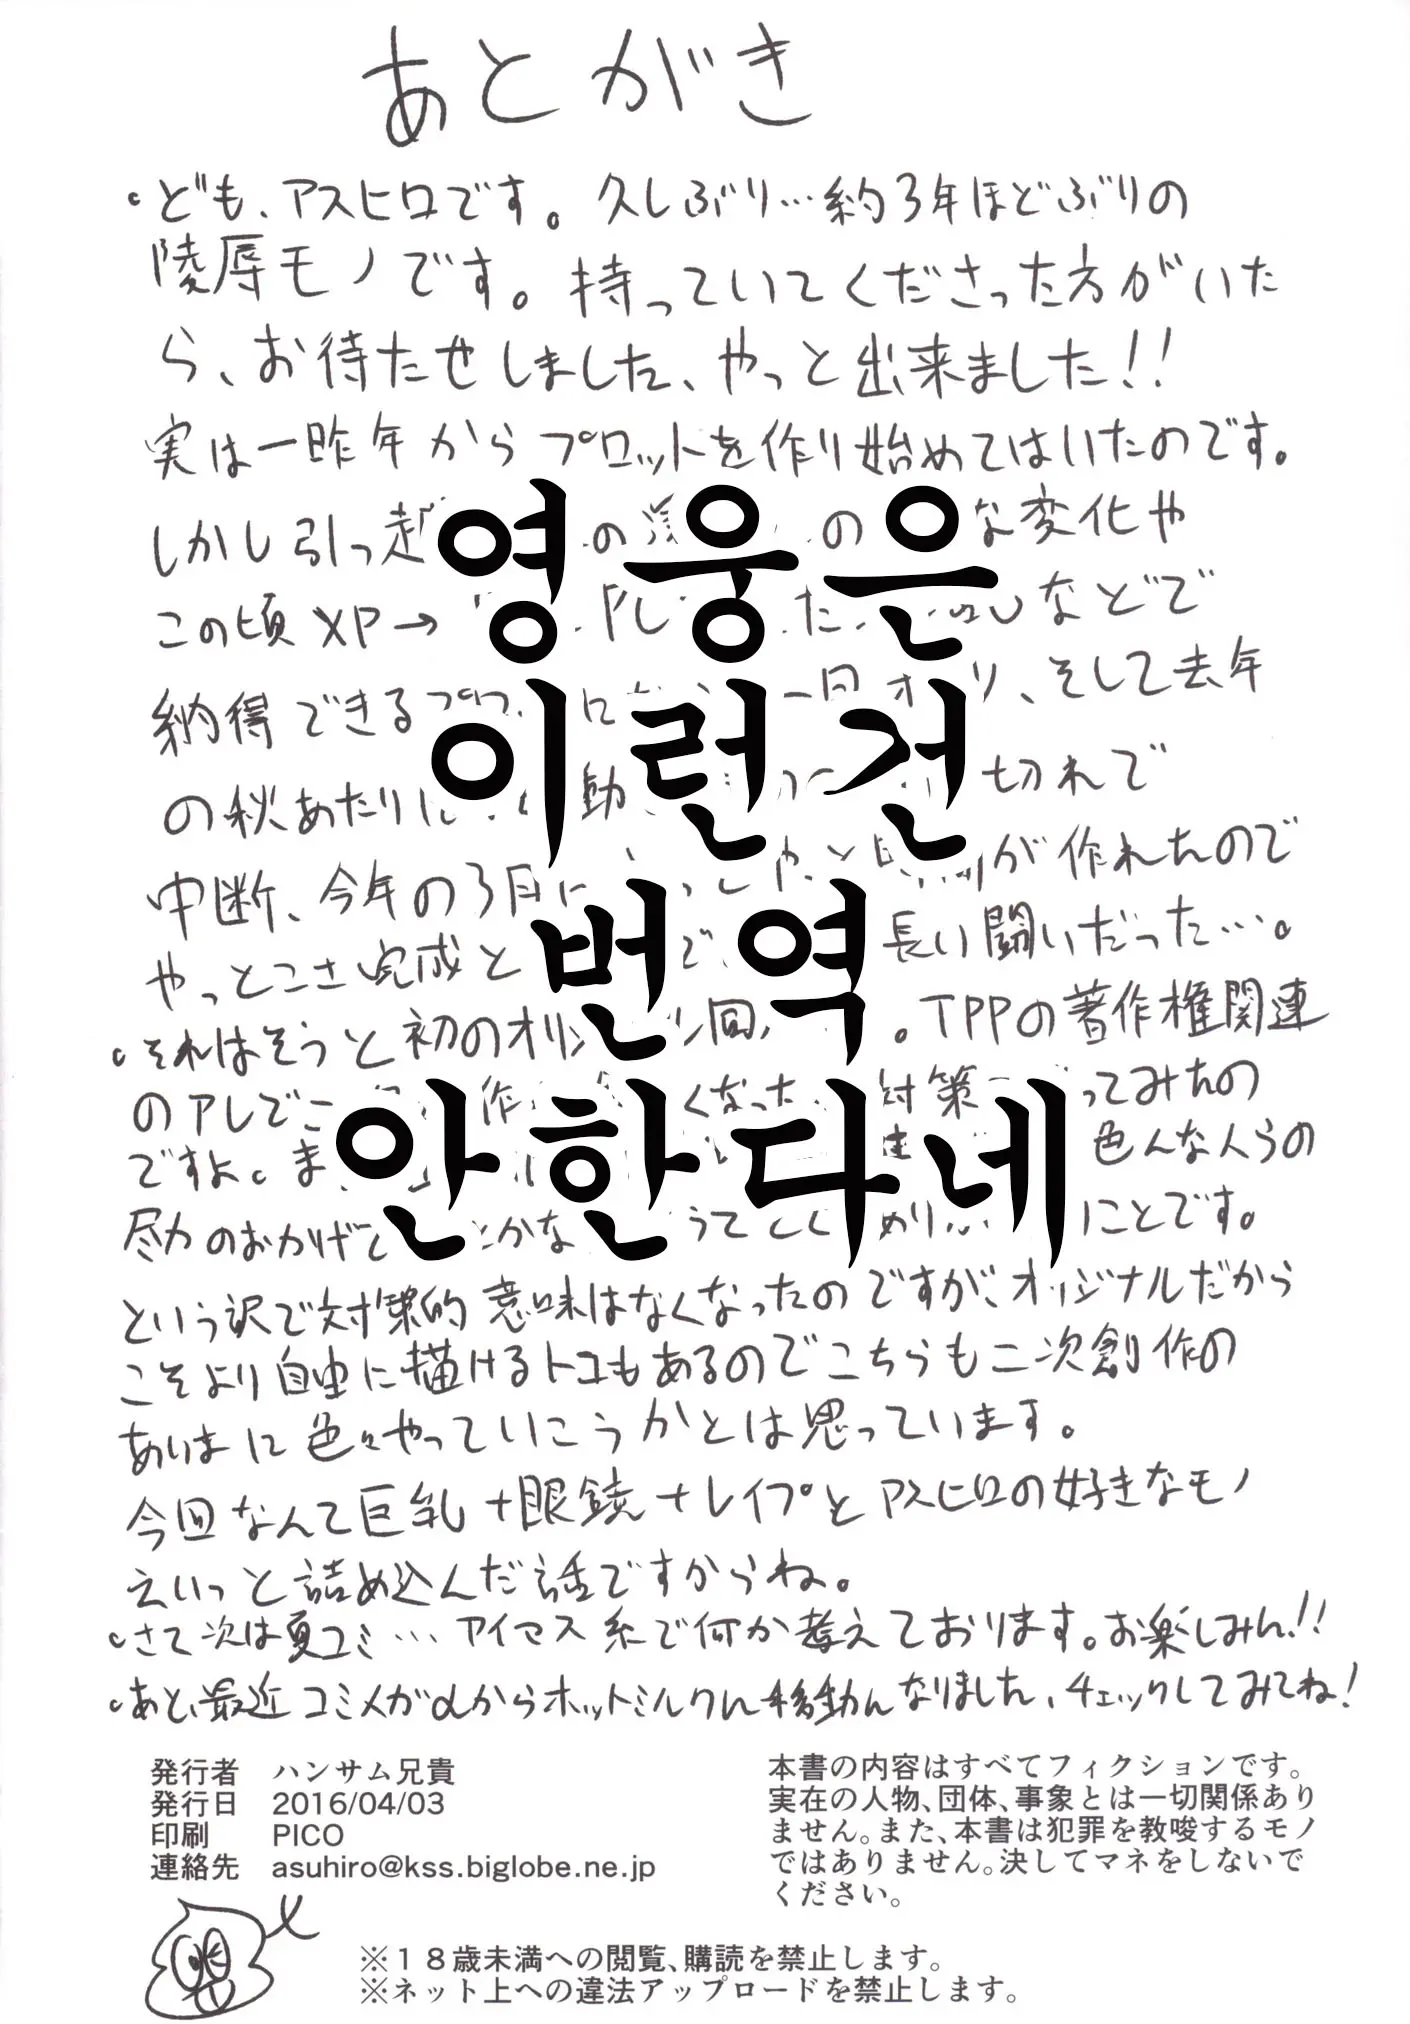 あとがき
・ども、アスヒロです。久しぶり…約3年ほどぶりの
陵辱モノです。持っていてくださった方がいた
ら、お待たせしました、やっと出来ました!!
実は一昨年からプロットを作り始めてはいたのです。
しかし引っ越 の の な変化や
この頃XP→ などで
納得できる 一回 、そして去年
の秋あたりに 動 切れで
中断、今年の3月に が作れたので
やっとこさ完成と で 長い闘いだった…。
・それはそうと初のオリ 回 。TPPの著作権関連
のアレでこ 作 くなった 対策 ってみたの
ですよ。ま 色んな人らの
尽力のおかげで とかな ことです。
という訳で対策的意味はなくなったのですが、オリジナルだから
こそより自由に描けるトコもあるのでこちらも二次創作の
あいまに色々やっていこうかとは思っています。
今回なんて巨乳+眼鏡+レイプとアスヒロの好きなモノ
えいっと詰め込んだ話ですからね。
・さて次は夏コミ…アイマス系で何か考えております。お楽しみん!!
・あと、最近コミメガαからホットミルクに移動んなりました、チェックしてみてね!
영웅은
이런건
번역
안한다네
発行者 ハンサム兄貴
発行日 2016/04/03
印刷 PICO
連絡先 asuhiro@kss.biglobe.ne.jp
本書の内容はすべてフィクションです。
実在の人物、団体、事象とは一切関係あり
ません。また、本書は犯罪を教唆するモノ
ではありません。決してマネをしないで
ください。
※18歳未満への閲覧、購読を禁止します。
※ネット上への違法アップロードを禁止します。